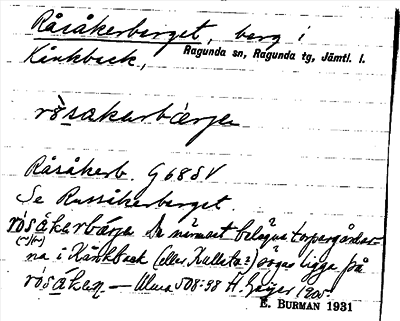 Råsåkerberget, berg i
Kånkback,
Ragunda sn, Ragunda tg, Jämtl. l.
rò̀sakarbærje
Råsåkerb. G 68 SV
Se Russåkerberget
rósákerbærje De närmast belägna torpargårdar-
na i Kånkback (eller Kullsta?) säges ligga på
rósákeɳ — Ulma 508:98 H. Geijer 1905
E. BURMAN 1931